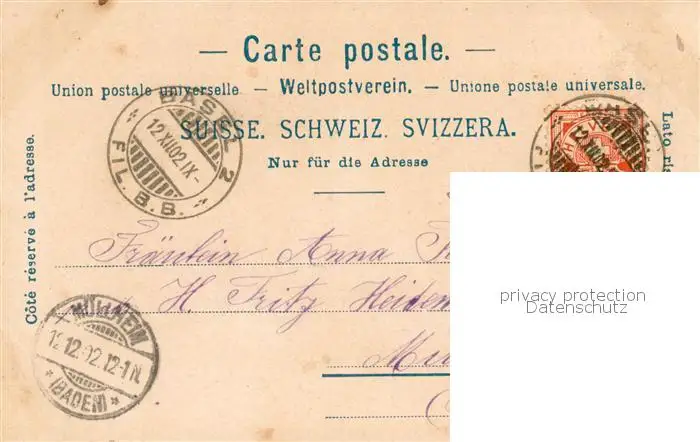 — Carte postale. —
Union postale universelle. — Weltpostverein. — Unione postale universale.
SUISSE. SCHWEIZ. SVIZZERA.
Nur für die Adresse
Côté réservé à l'adresse.
Lato ris
BASEL 2
12.XII.02.IX-
* FIL. B.B. *
Fräulein Anna
H. Fritz Heiden
Mü
MÜLLHEIM
12.12.02.12-1N.
* (BADEN) *
privacy protection
Datenschutz